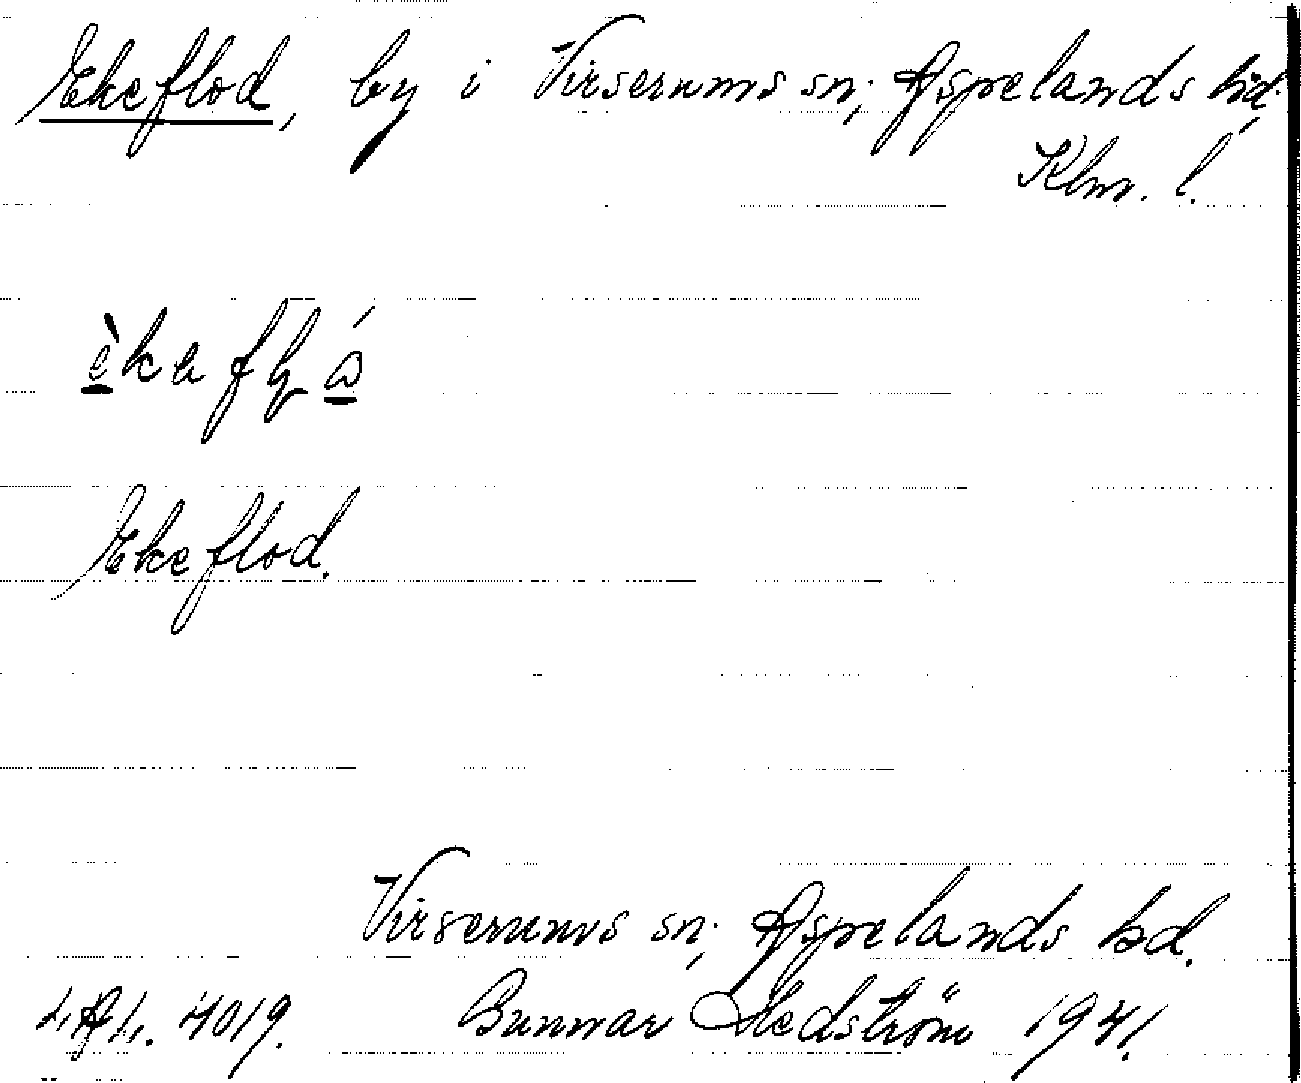 Ekeflod, by i Virserums sn; Aspelands hd.
Klm. l.
Ekeflod.
Virserums sn; Aspelands hd.
L.A.L. 4019. Gunnar Hedström 1941.